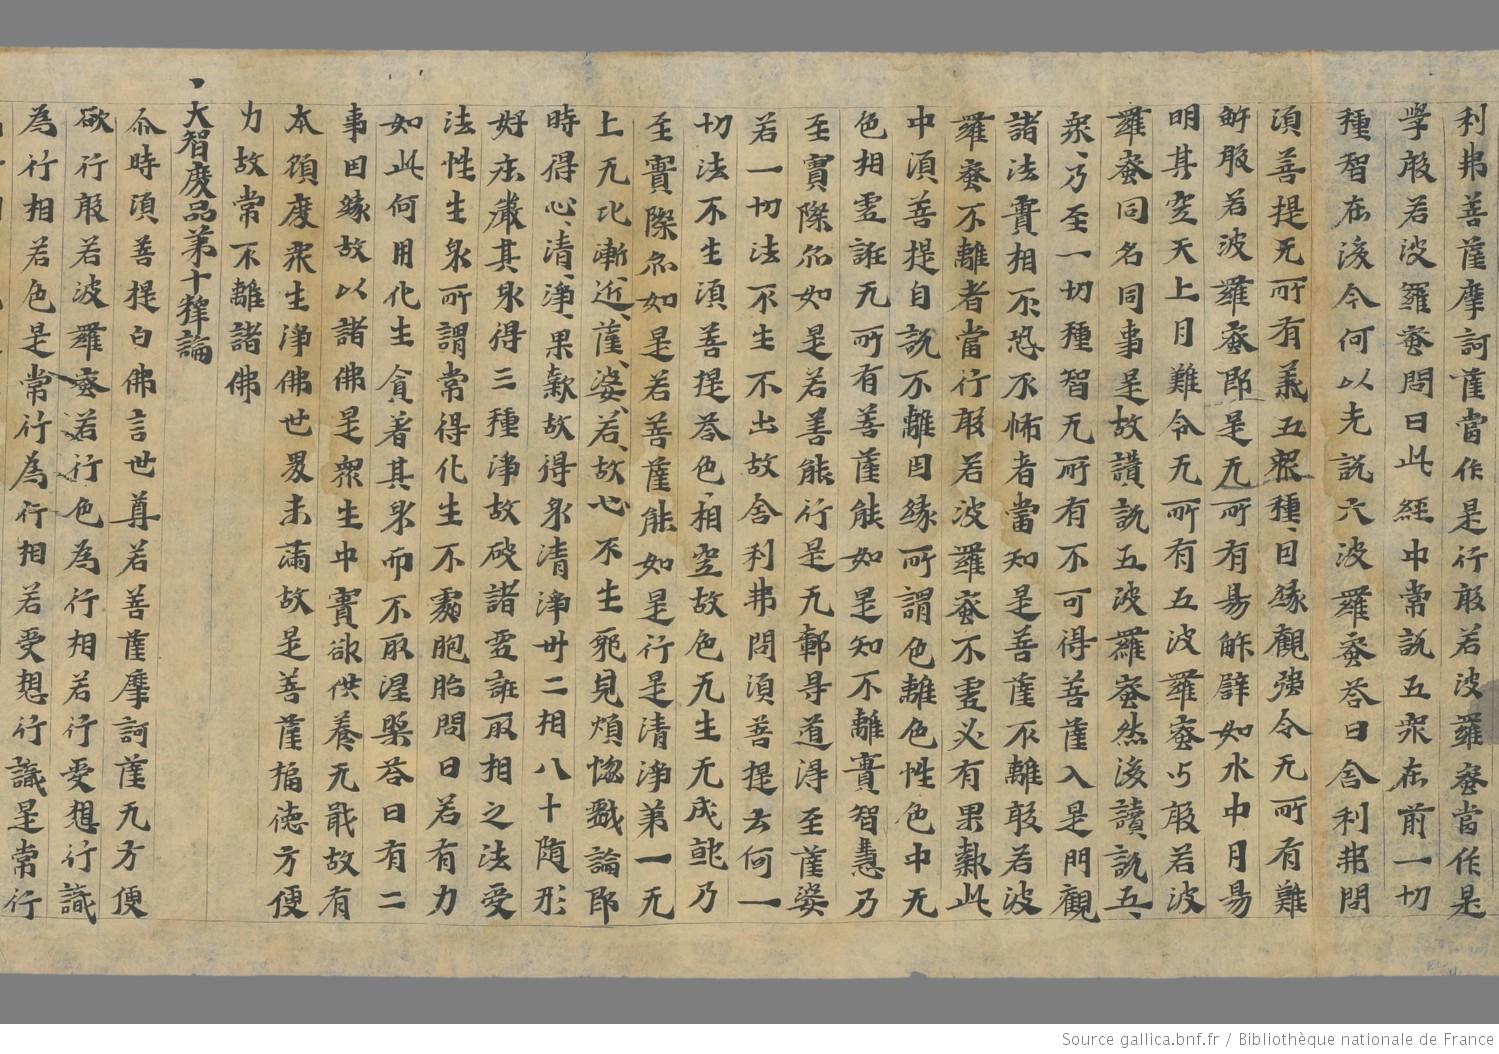 利弗菩薩摩訶薩當作是行般若波羅蜜當作是
學般若波羅蜜問曰此經中常說五眾在前一切
種智在後今何以先說六波羅蜜荅曰舍利弗問
須菩提无所有義五根種〻因緣觀强令无所有難
解般若波羅蜜即是无所有易解譬如水中月易
明其空天上月難令无所有五波羅蜜与般若波
羅蜜同名同事是故讚說五波羅蜜然後讚說五〻
眾〻乃至一切種智无所有不可得菩薩入是門觀
諸法實相不恐不怖者當知是菩薩不離般若波
羅蜜不離者當行般若波羅蜜不虛必有果報此
中須菩提自說不離因緣所謂色離色性色中无
色相虛誑无所有菩薩能如是知不離實智慧乃
至實際亦如是若善能行是无鄣㝵道得至薩婆
若一切法不生不出故舍利弗問須菩提云何一
切法不生須菩提荅色〻相空故色无生无成就乃
至實際亦如是若菩薩能如是行是清淨第一无
上无比漸〻近〻薩〻婆〻若〻故心不生邪見煩惱戲論即
時得心〻清〻淨〻果報故得身清淨卅二相八十隨形
好莊嚴其身得三種淨故破諸虛誑取相之法受
法性生身所謂常得化生不處胞胎問曰若有力
如此何用化生貪著其身而不取涅槃荅曰有二
事因緣故以諸佛是眾生中寶欲供養无猒故有
本願度眾生淨佛世界未滿故是菩薩福德方便
力故常不離諸佛
大智度品第十釋論
尒時須菩提白佛言世尊若菩薩摩訶薩无方便
欲行般若波羅蜜若行色為行相若行受想行識
為行相若色是常行為行相若受想行識是常行